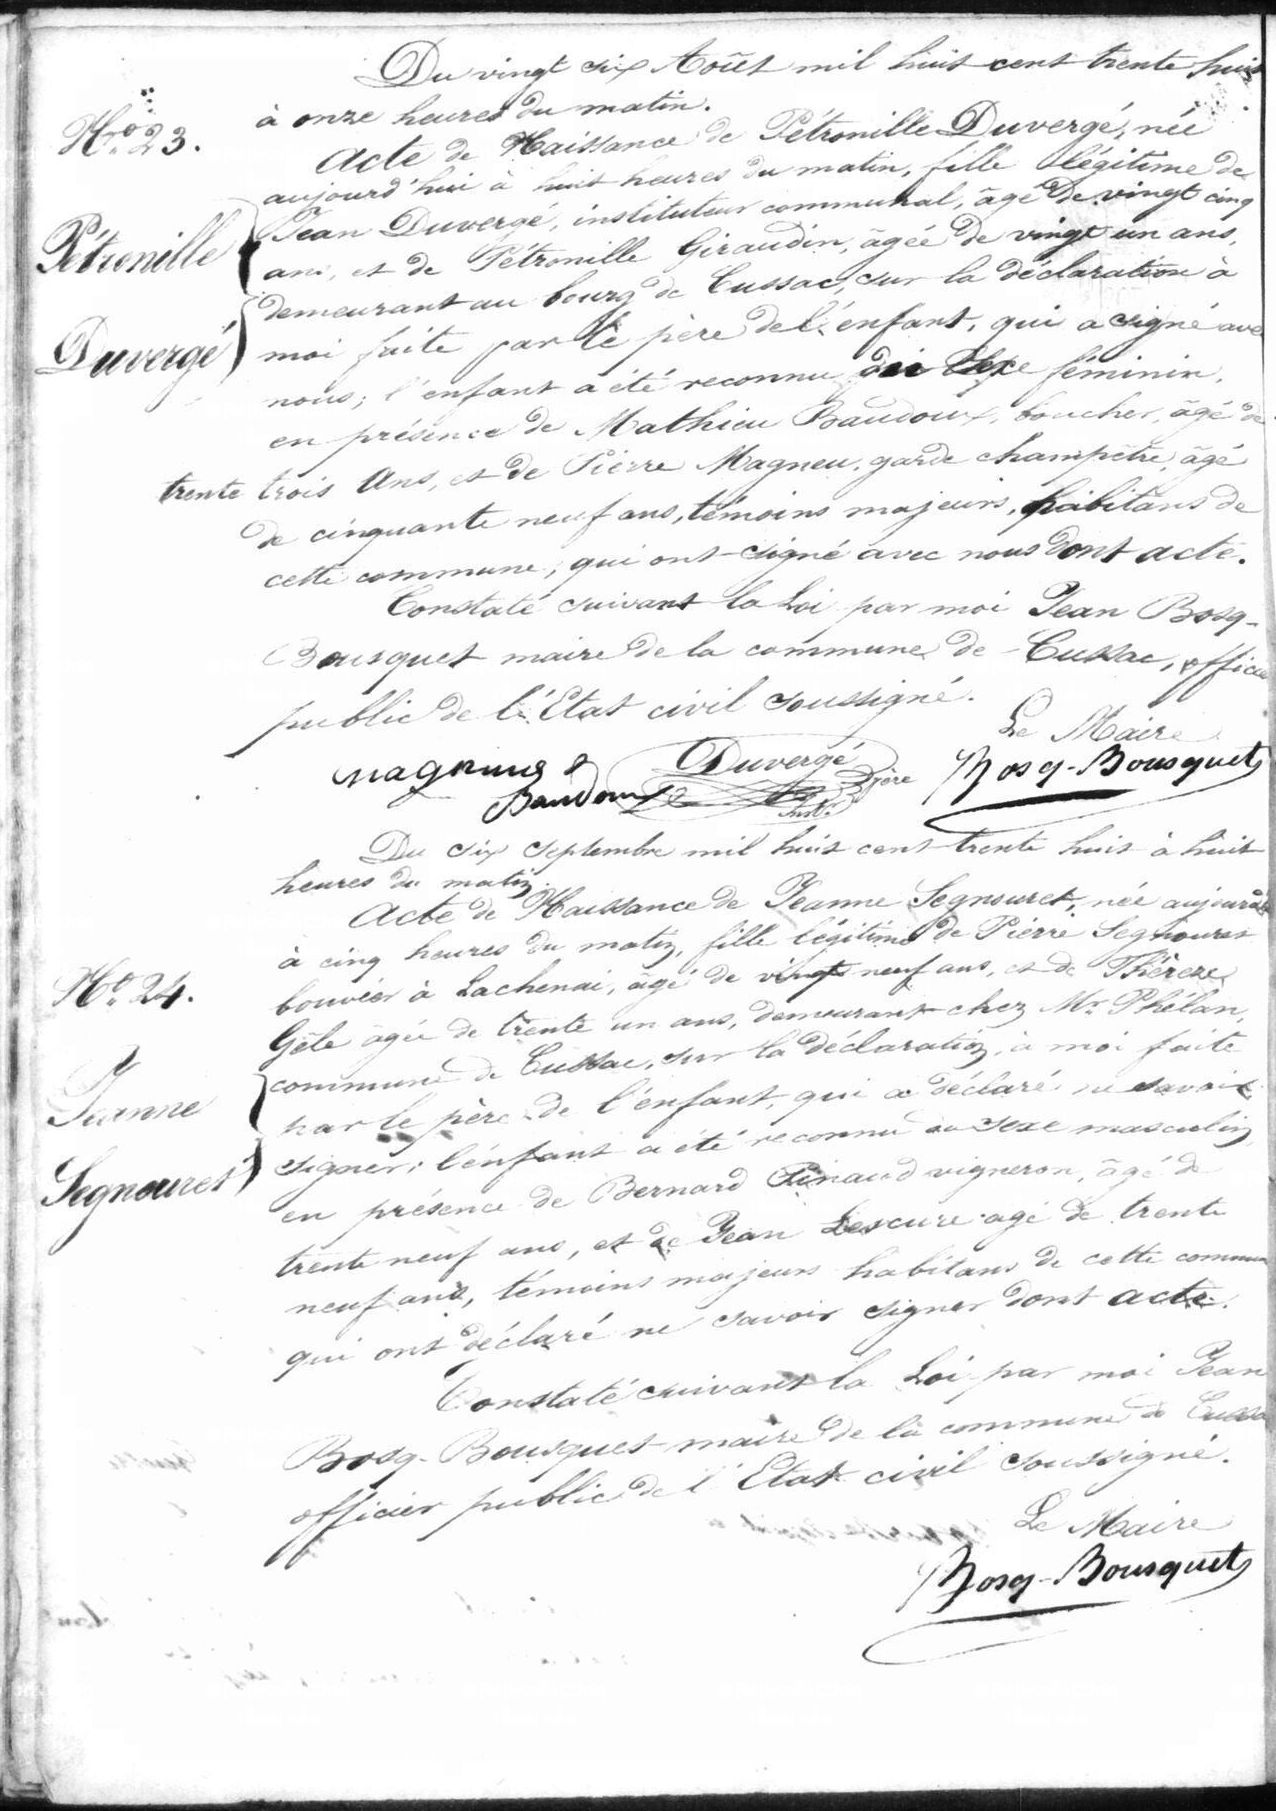 Du vingt six Août mil huit cent trente huit
à onze heures du matin.
N.º 23.
Acte de Naissance de Pétronille Duvergé, née
aujourd'hui à huit heures du matin, fille légitime de
Jean Duvergé, instituteur communal, âgé de vingt cinq
Pétronille
ans, et de Pétronille Giraudin, âgée de vingt un ans,
demeurant au bourg de Cussac, sur la déclaration à
Duvergé
moi faite par le père de l'enfant, qui a signé avec
nous; l'enfant a été reconnu du sexe féminin,
en présence de Mathieu Baudoux, boucher, âgé de
trente trois ans, et de Pierre Magneu, garde champêtre, âgé
de cinquante neuf ans, témoins majeurs, habitans de
cette commune, qui ont signé avec nous dont acte.
Constaté suivant la Loi par moi Jean Bosq-
Bousquet maire de la commune de Cussac, officier
public de l'Etat civil soussigné.
Le Maire
Duvergé
père
Baudoux
Inst.
Bosq-Bousquet
Du six Septembre mil huit cent trente huit à huit
heures du matin.
Acte de Naissance de Jeanne Segnouret, née aujourd'hui
à cinq heures du matin, fille légitime de Pierre Segnouret
N.º 24.
bouvier à Lachenai, âgé de vingt neuf ans, et de Thérèze
Gële âgée de trente un ans, demeurant chez Mr. Phélan,
Jeanne
commune de Cussac, sur la déclaration, à moi faite
par le père de l'enfant, qui a déclaré ne savoir
Segnouret
signer; l'enfant a été reconnu du sexe masculin,
en présence de Bernard Pinaud vigneron, âgé de
trente neuf ans, et de Jean Lescure agé de trente
neuf ans, témoins majeurs habitans de cette commune
qui ont déclaré ne savoir signer dont acte.
Constaté suivant la Loi par moi Jean
Bosq-Bousquet maire de la commune de Cussac
officier public de l'Etat civil soussigné.
Le Maire
Bosq-Bousquet